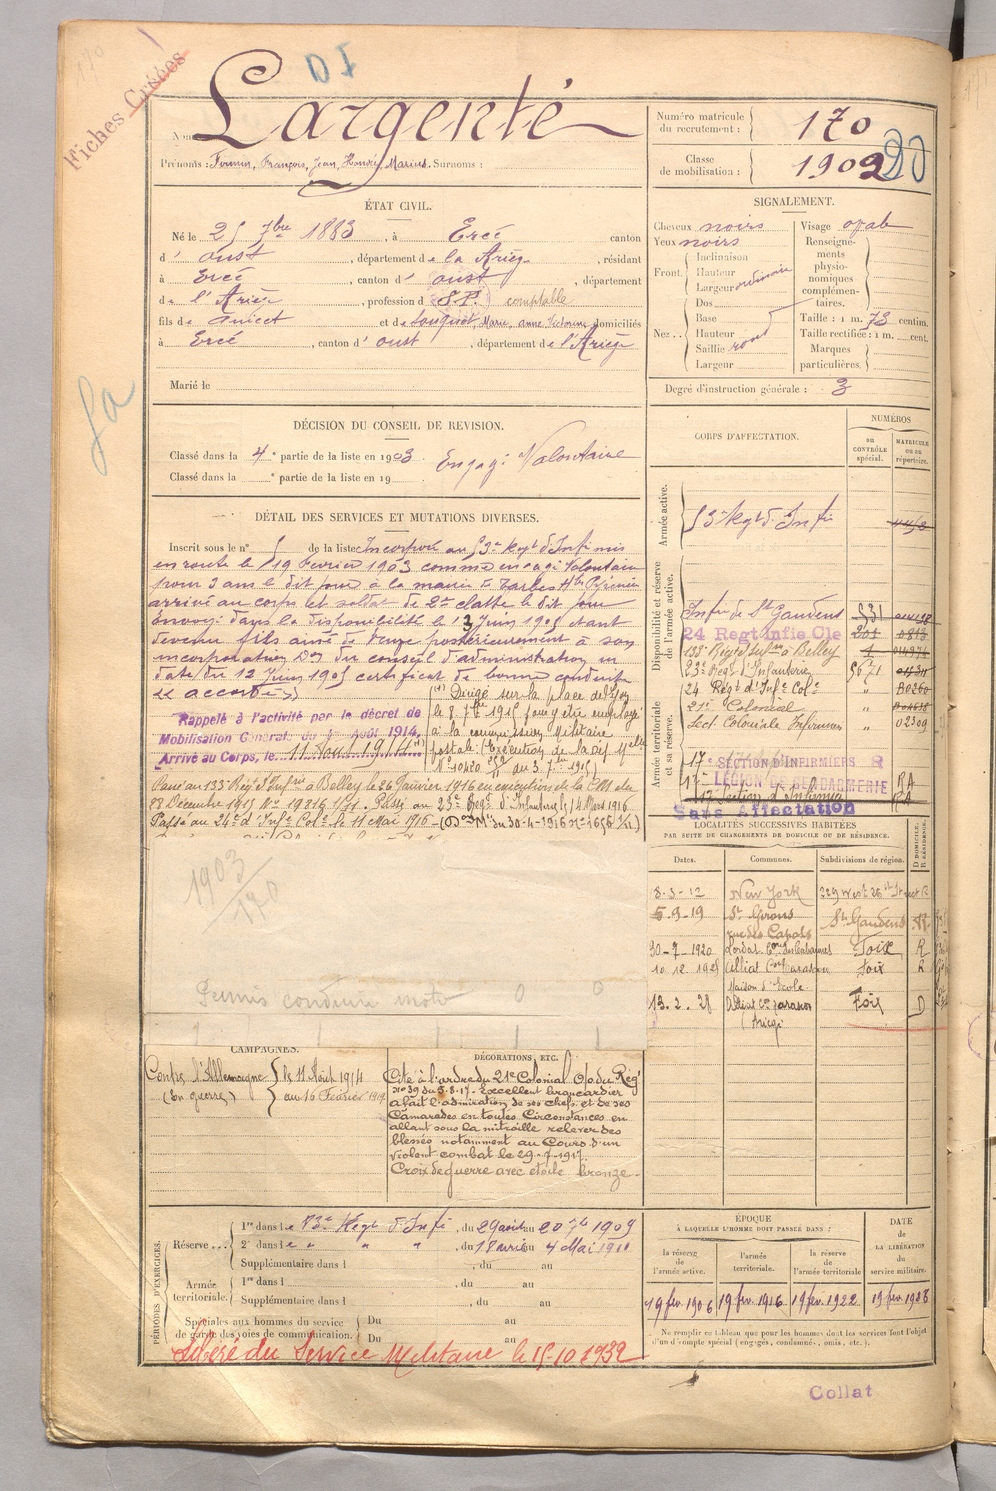 DI
Fiches Créées
Nom: Largenté
Prénoms : Firmin, François, Jean, Honoré, Marius. Surnoms :
Numéro matricule du recrutement : 170
Classe de mobilisation : 1902
20
ÉTAT CIVIL.
Né le 25 7bre 1883, à Ercé canton
d' oust, département de la Ariège, résidant
à Ercé, canton d' oust, département
de l'Ariège, profession d S.P. comptable
fils de Anicet et de Souquet, Marie, anne, Victorine domiciliés
à Ercé, canton d' oust, département de l'Ariège
Marié le
SIGNALEMENT.
Cheveux noirs
Yeux noirs
Front. Inclinaison
Hauteur
Largeur ordinaire
Nez.. Dos
Base
Hauteur
Saillie rond
Largeur
Visage oval
Renseignements physionomiques complémentaires.
Taille : 1 m. 73 centim.
Taille rectifiée : 1 m. cent.
Marques particulières.
Degré d'instruction générale : 3
DÉCISION DU CONSEIL DE REVISION.
Classé dans la 4e partie de la liste en 1903 Engagé Volontaire
Classé dans la e partie de la liste en 19
DÉTAIL DES SERVICES ET MUTATIONS DIVERSES.
Inscrit sous le n° de la liste Incorporé au 53e Regt d'Infie mis
en route le 19 février 1903 comme engagé Volontaire
pour 3 ans le dit jour à la mairie de Tarbes Htes Pyrénées
arrivé au corps et soldat de 2e classe le dit jour
Envoyé dans la disponibilité le 13 Juin 1905 étant
devenu fils ainé de veuve postérieurement à son
incorporation Don du conseil d'administration en
date du 12 Juin 1905 certificat de bonne conduite
"accordé"
Rappelé à l'activité par le décret de
Mobilisation Générale du 1 Août 1914,
Arrivé au Corps, le 11 Août 1914 (H)
(H) Dirigé sur la place de Lyon
le 8 7bre 1915 pour y être employé
à la commission Militaire
postale. (Exécution de la
Nº 10420 du 3 7bre 1915)
Passé au 133 Régt d'Infrie Belley le 26 Janvier 1916 en exécution de la C.M. du
28 Décembre 1915 No 19216 1/11 - Passé au 23e Regt d'Infanterie le 14 Mars 1916
Passé au 24e d'Infie Colle le 11 Mai 1916 - (Don Mlle du 30-4-1916 nº 4656 1/11)
1903/170
Permis conduire moto
CORPS D'AFFECTATION.
NUMÉROS
au contrôle spécial.
matricule ou au répertoire.
Armée active.
53e Regt d'Infie
Disponibilité et réserve de l'armée active.
Infie de St Gaudens 531
24 Regt Infie Cle 201
133e Régt Infrie à Belley 1
23e Regt d'Infanterie 5671
24 Régt d'Infie Colle "
21e Colonial "
Sect Coloniale Infirmiers " 02309
Armée territoriale et sa réserve.
17e SECTION D'INFIRMIERS R
17e LÉGION DE GENDARMERIE RA
17 Section d'Infirmiers RA
Sans Affectation
LOCALITÉS SUCCESSIVES HABITÉES
PAR SUITE DE CHANGEMENTS DE DOMICILE OU DE RÉSIDENCE.
Dates. Communes. Subdivisions de région. D DOMICILE. R RÉSIDENCE.
8-3-12 New York 229 West 26 st Street R
5-9-19 St Girons St Gaudens R
rue des Capots
30-7-1920 Lordat Con des Cabannes Foix R
10.12.1925 Alliat Con Tarascon Foix R
Maison d'Ecole
13.2.28 Alliat Con Tarascon Foix D
(Ariège
CAMPAGNES.
Contre l'Allemagne (En guerre) le 11 Août 1914 au 16 Février 1919
DÉCORATIONS, ETC.
Cité à l'ordre du 21e Colonial O/. du Reg'
nº 39 du 5-8-17 - Excellent brancardier
a fait l'admiration de ses chefs et de ses
Camarades en toutes Circonstances en
allant sous la mitraille relever des
blessés notamment au Cours d'un
violent combat le 29-7-1917.
Croix de guerre avec étoile bronze
PÉRIODES D'EXERCICES.
Réserve... 1re dans le 83e Régt d'Infie, du 29 août au 20 7bre 1909
2e dans le " " ", du 18 avril au 4 Mai 1911
Supplémentaire dans l , du au
Armée territoriale. 1re dans l , du au
Supplémentaire dans l , du au
Spéciales aux hommes du service de garde des voies de communication. Du au
Du au
Libéré du Service Militaire le 15-10 1932
ÉPOQUE
À LAQUELLE L'HOMME DOIT PASSER DANS :
la réserve de l'armée active.
l'armée territoriale.
la réserve de l'armée territoriale
DATE DE LA LIBÉRATION du service militaire.
19 fev. 1906 19 fev. 1916 19 fev. 1922 19 fev. 1928
Ne remplir ce tableau que pour les hommes dont les services font l'objet
d'un décompte spécial (engagés, condamnés, omis, etc.).
Collat